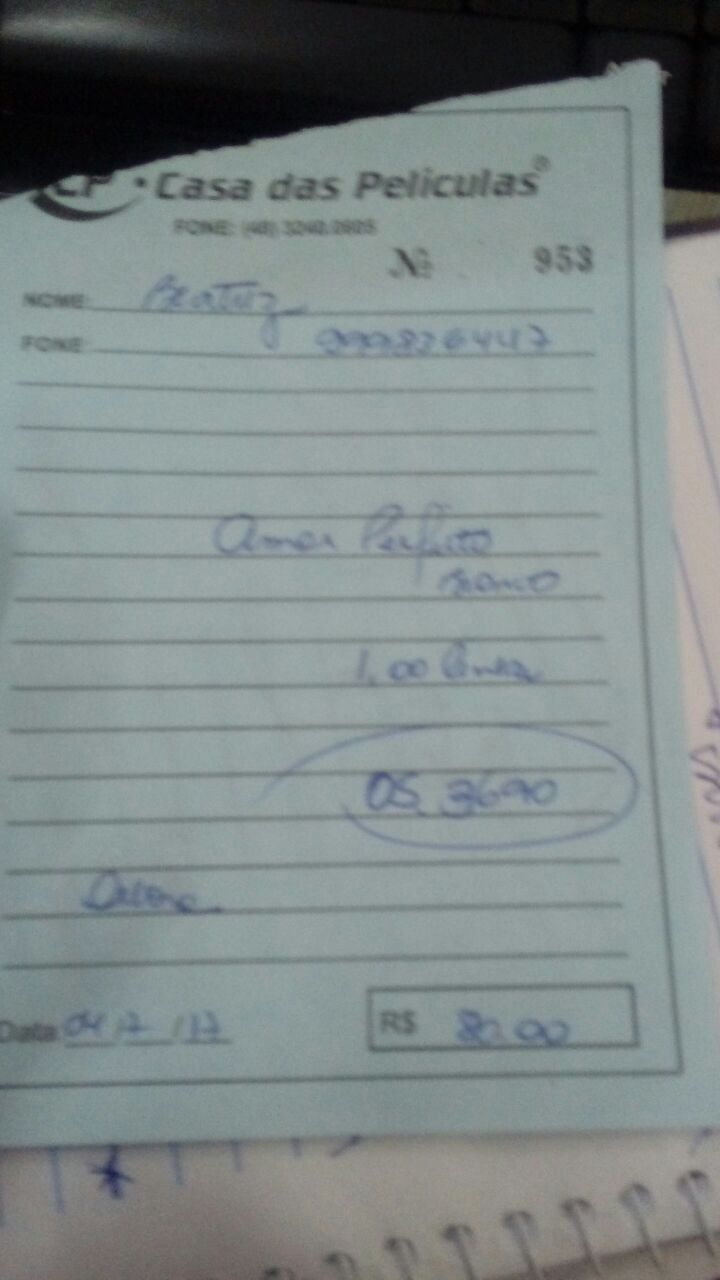 CP • Casa das Películas®
FONE: (48) 3240.2605
Nº 953
NOME: Beatriz
FONE: 999826447
Amor Perfeito
1,00
OS. 3690
Data 04/7/17
R$ 80.00